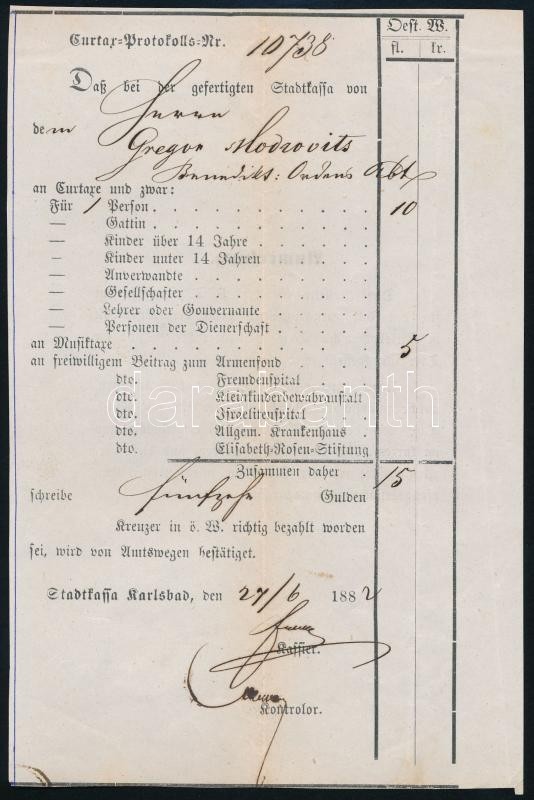 Oest. W.
Curtax-Protokolls-Nr. 10738
fl. kr.
Daß bei der gefertigten Stadtkassa von
dem Herrn
Gregor Modrovits
Benedikt: Ordens Abt
an Curtaxe und zwar:
Für 1 Person 10
— Gattin
— Kinder über 14 Jahre
- Kinder unter 14 Jahren
— Anverwandte
— Gesellschafter
— Lehrer oder Gouvernante
— Personen der Dienerschaft
an Musiktaxe 5
an freiwilligem Beitrag zum Armenfond
dto. Fremdenspital
dto. Kleinkinderbewahranstalt
darabanth
dto. Israelitenspital
dto. Allgem. Krankenhaus
dto. Elisabeth-Rosen-Stiftung
Zusammen daher 15
schreibe fünfzehn Gulden
Kreuzer in ö. W. richtig bezahlt worden
sei, wird von Amtswegen bestätiget.
Stadtkassa Karlsbad, den 27/6 1882
Kassier.
Kontrolor.